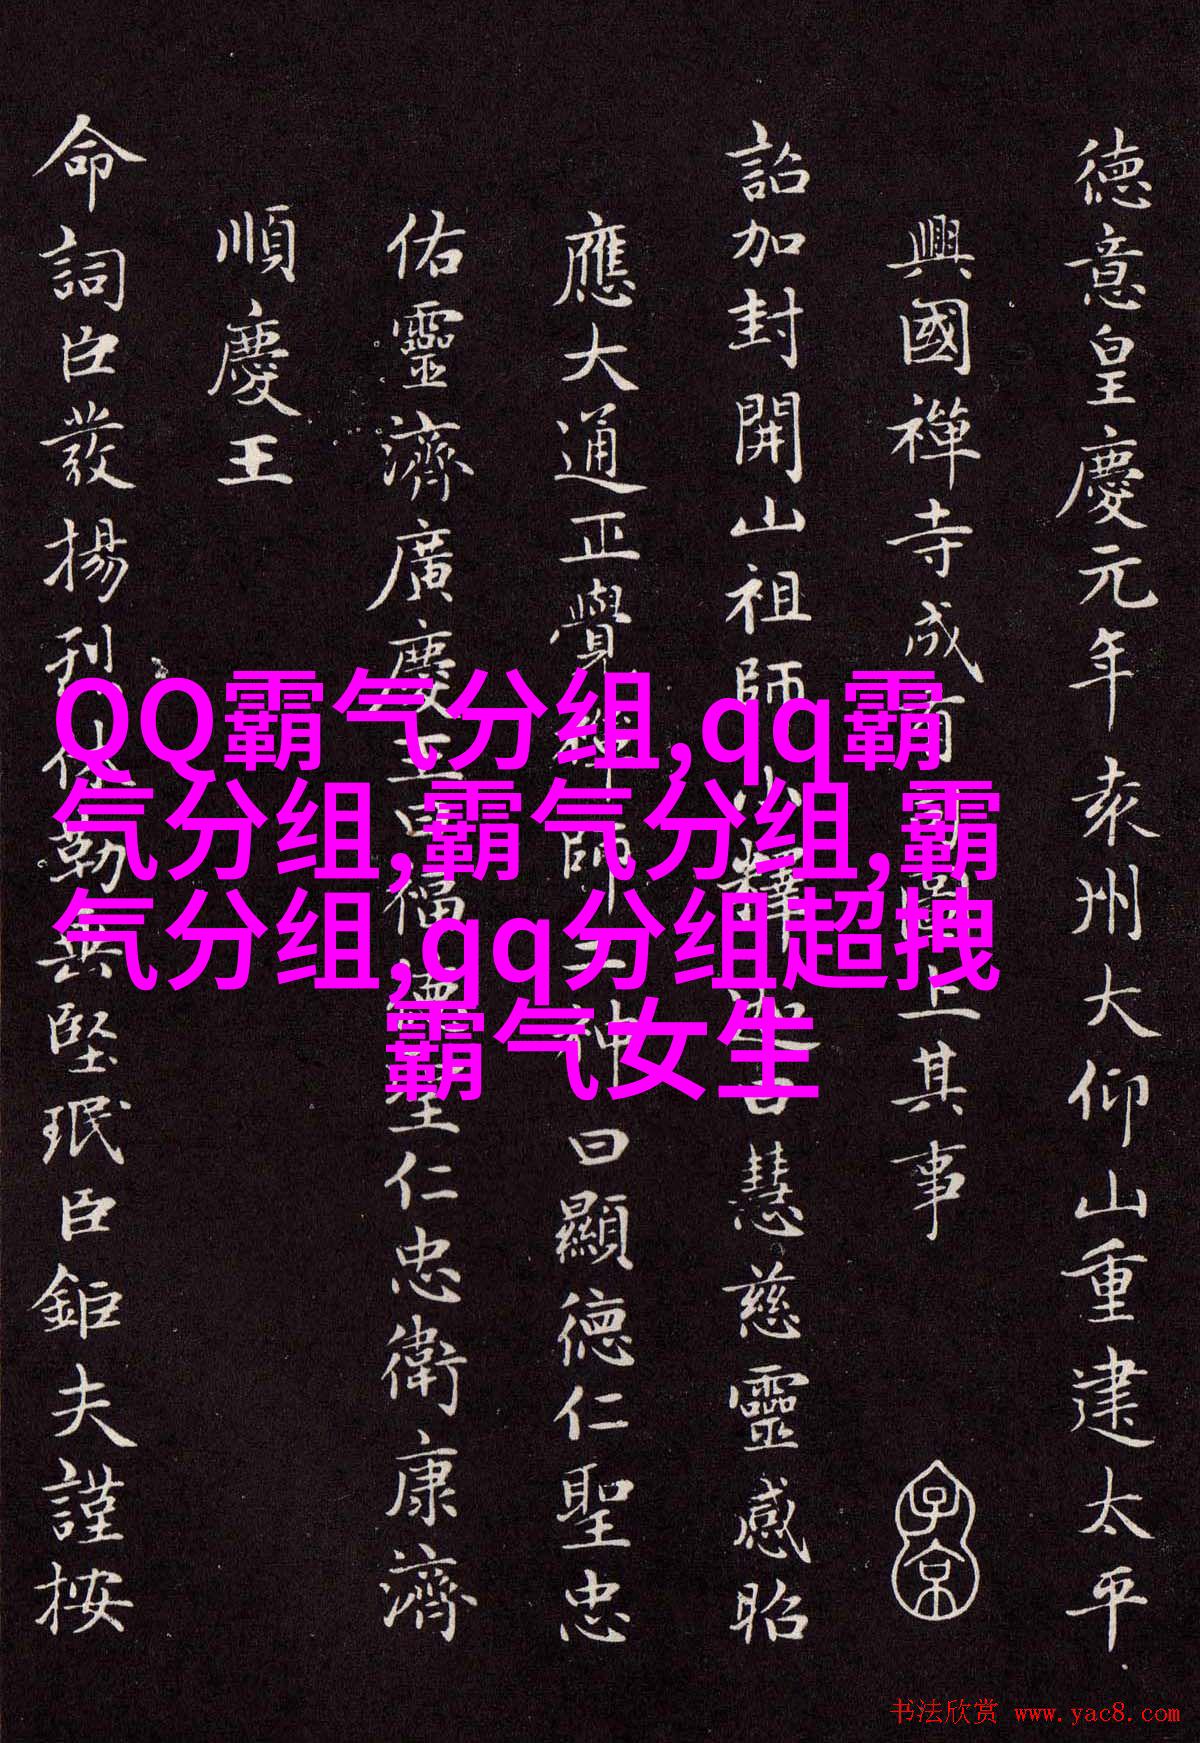 德意皇慶元年袁州大仰山重建太平
興國禪寺成有司圖上其事
詔加封開山祖師小釋迦曰慧慈靈感昭
應大通正覺禪師二神曰顯德仁聖忠
佑靈濟廣慶王曰福德聖仁忠衛康濟
順慶王
命詞臣發揚刊佀勒無堅珉臣鉅夫謹按
QQ霸气分组,qq霸
气分组,霸气分组,霸
气分组,qq分组超拽
霸气女生
书法欣赏 www.yac8.com